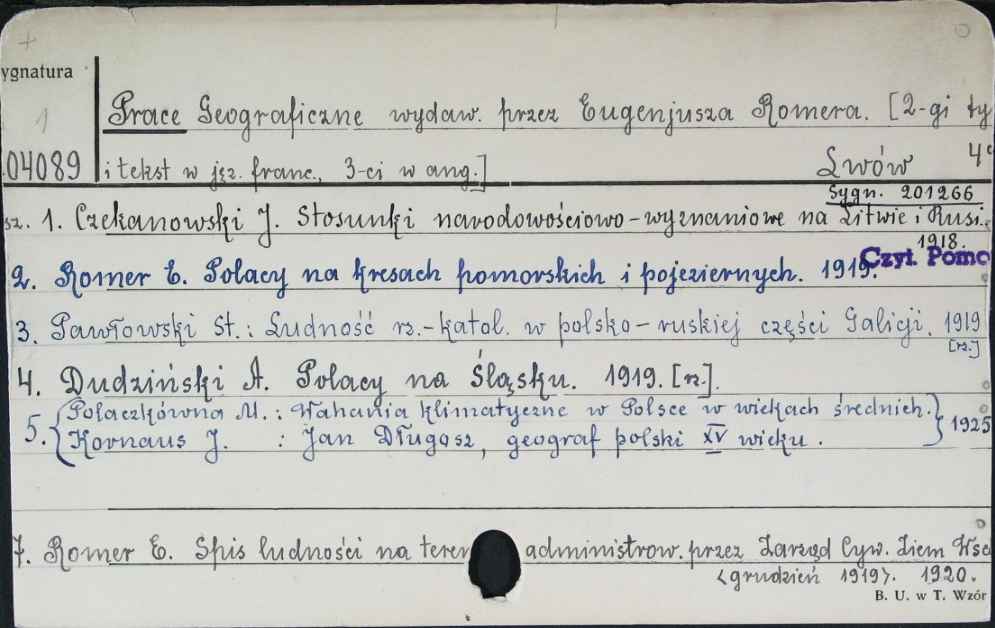 ygnatura
1
Prace Geograficzne wydaw. przez Eugenjusza Romera. [2-gi ty
04089 i tekst w jęz. franc., 3-ci w ang.] Lwów 4°
Sygn. 201266
sz. 1. Czekanowski J. Stosunki narodowościowo-wyznaniowe na Litwie i Rusi.
1918.
Czyt. Pomo
2. Romer E. Polacy na kresach pomorskich i pojeziernych. 1919.
3. Pawłowski St.: Ludność rz.-katol. w polsko-ruskiej części Galicji. 1919
[rz.]
4. Dudziński A. Polacy na Śląsku. 1919. [rz.].
5. {Polaczkówna M.: Wahania klimatyczne w Polsce w wiekach średnich.} 1925
{Kornaus J. : Jan Długosz, geograf polski XV wieku.}
7. Romer E. Spis ludności na teren administrow. przez Zarząd Cyw. Ziem Wsc
<grudzień 1919>. 1920.
B. U. w T. Wzór